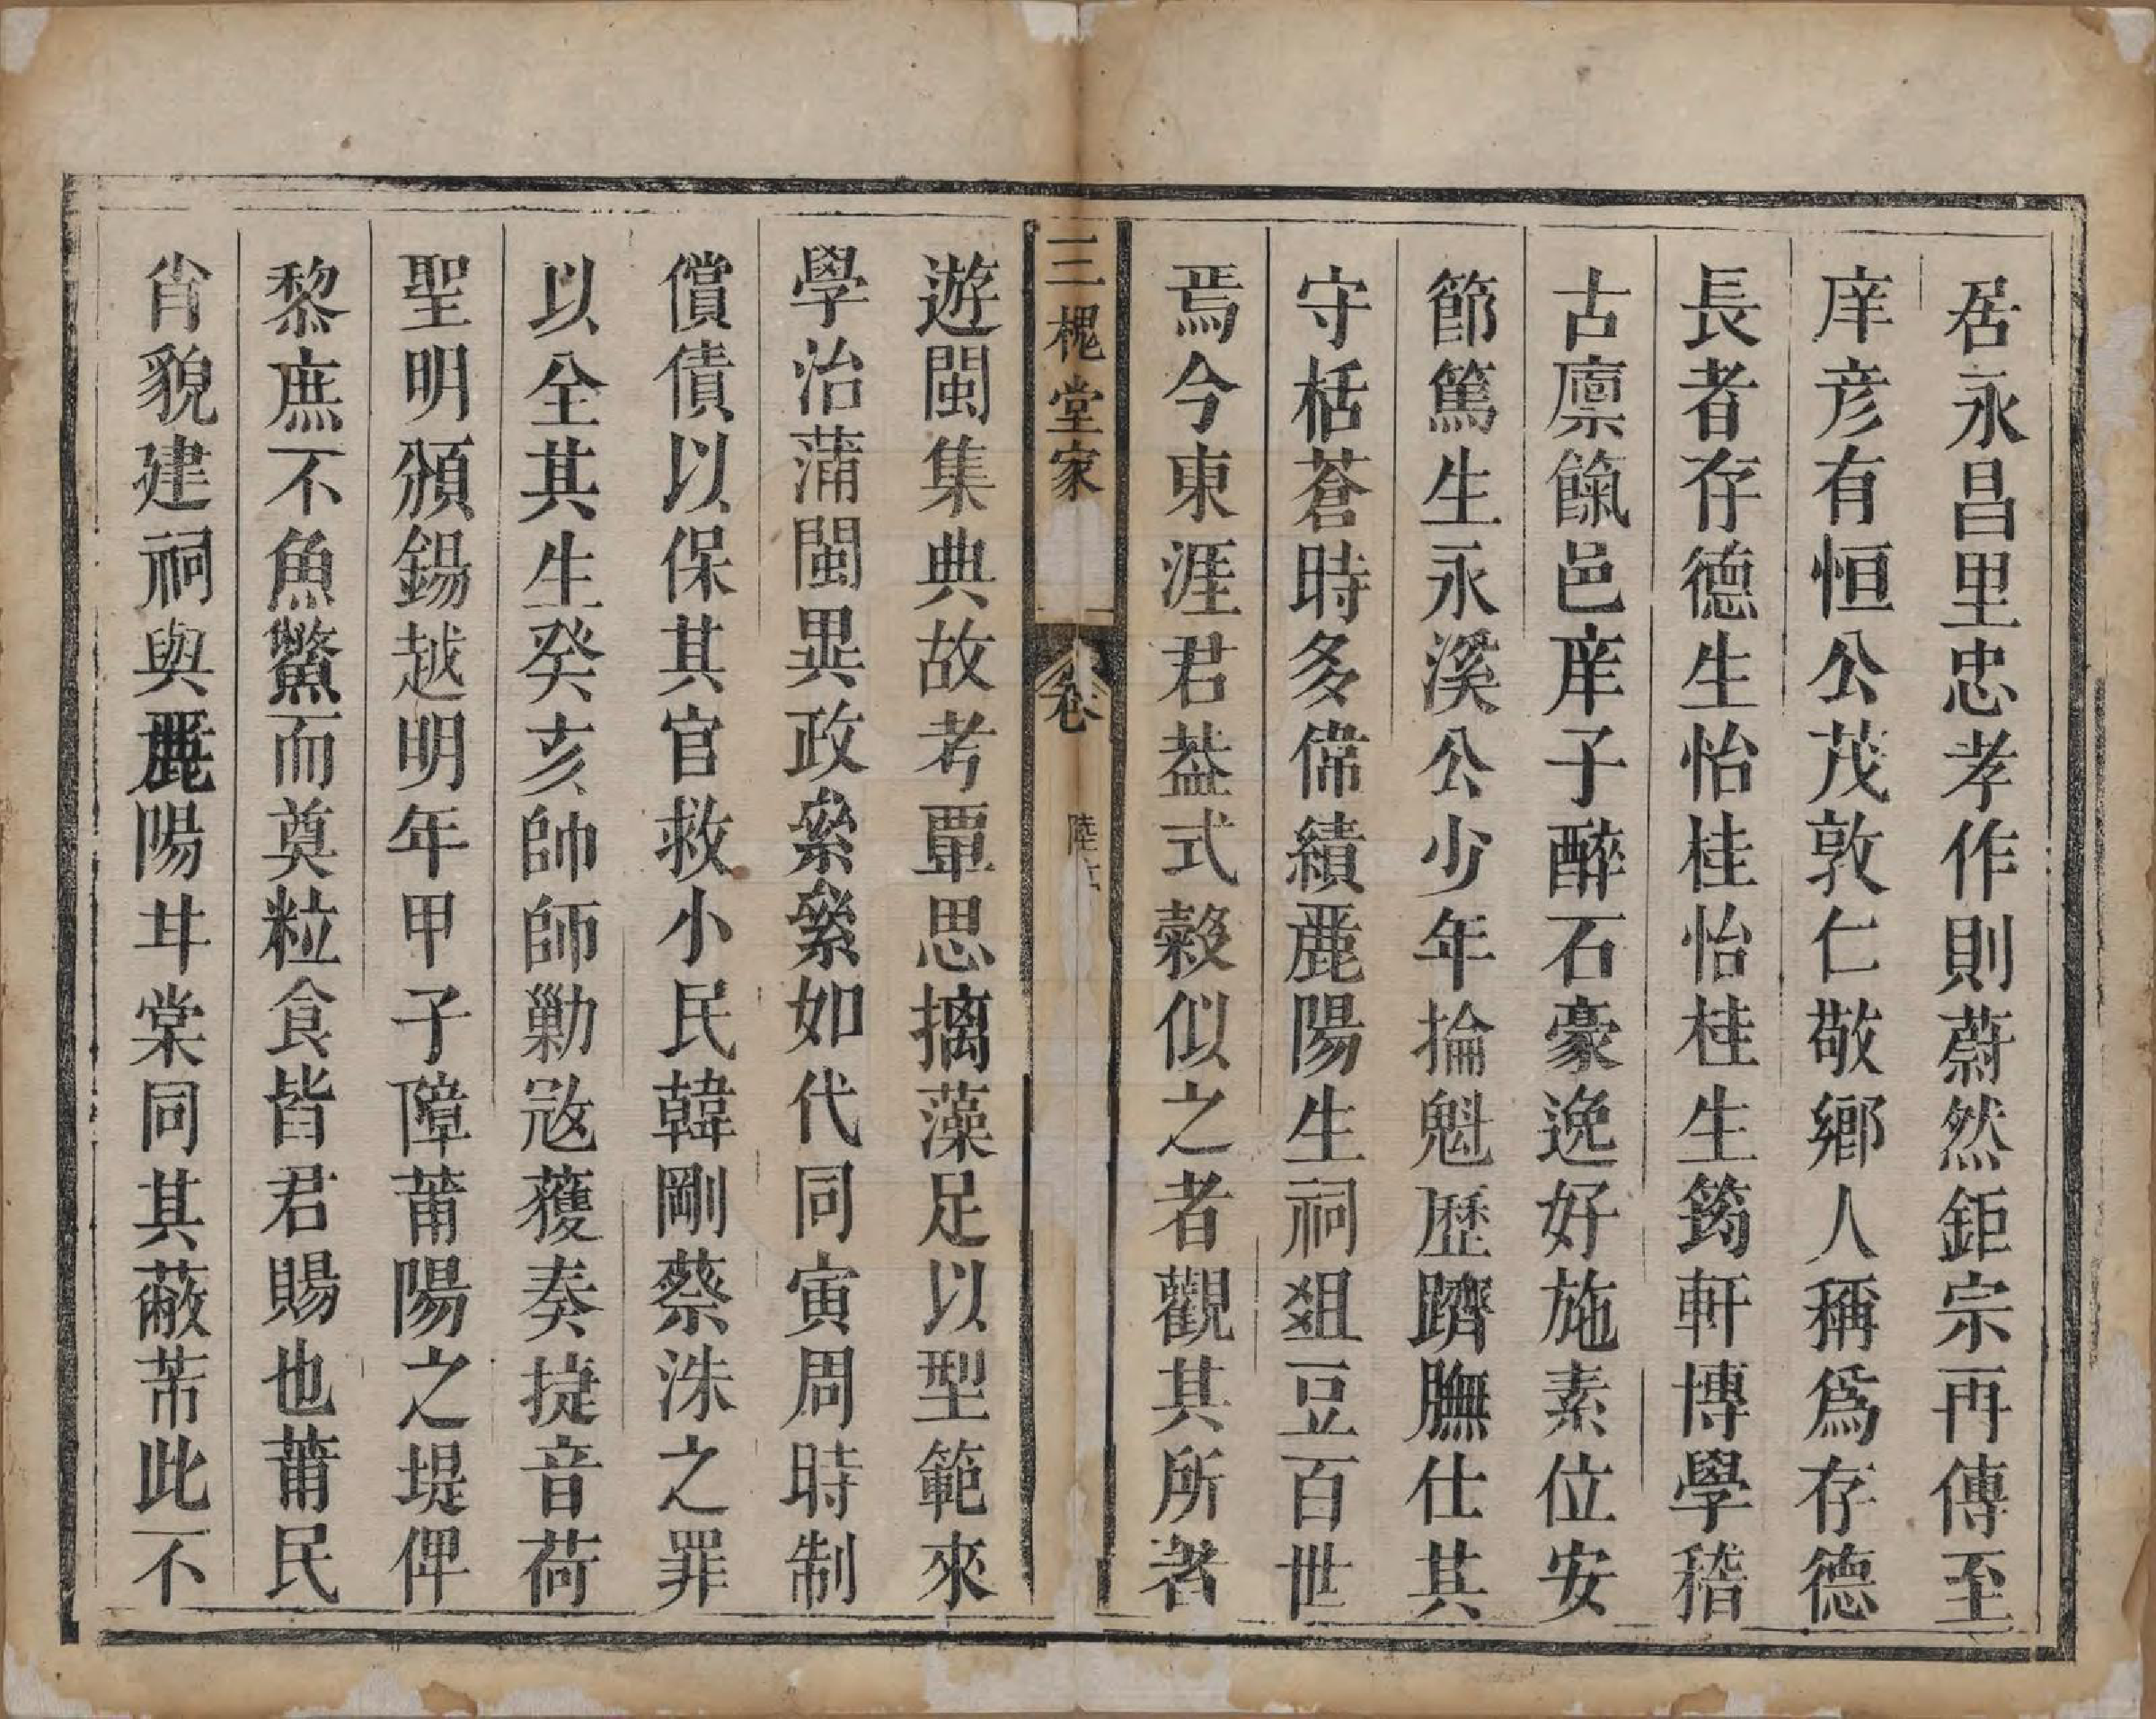 居永昌里忠孝作則蔚然鉅宗再傳至
庠彥有恒公茂敦仁敬鄉人稱爲存德
長者存德生怡桂怡桂生筠軒博學稽
古廪餼邑庠子醉石豪逸好施素位安
節篤生永溪公少年掄魁歷躋膴仕其
守栝蒼時多偉績麗陽生祠爼豆百世
焉今東涯君葢式穀似之者觀其所著
三槐堂家
卷
陸
遊閩集典故考覃思摛藻足以型範來
學治蒲閩異政纍纍如代同寅周時制
償債以保其官救小民韓剛蔡洙之罪
以全其生癸亥帥師勦寇獲奏捷音荷
聖明頒錫越明年甲子障莆陽之堤俾
黎庶不魚鱉而奠粒食皆君賜也莆民
肖貌建祠與麗陽甘棠同其蔽芾此不